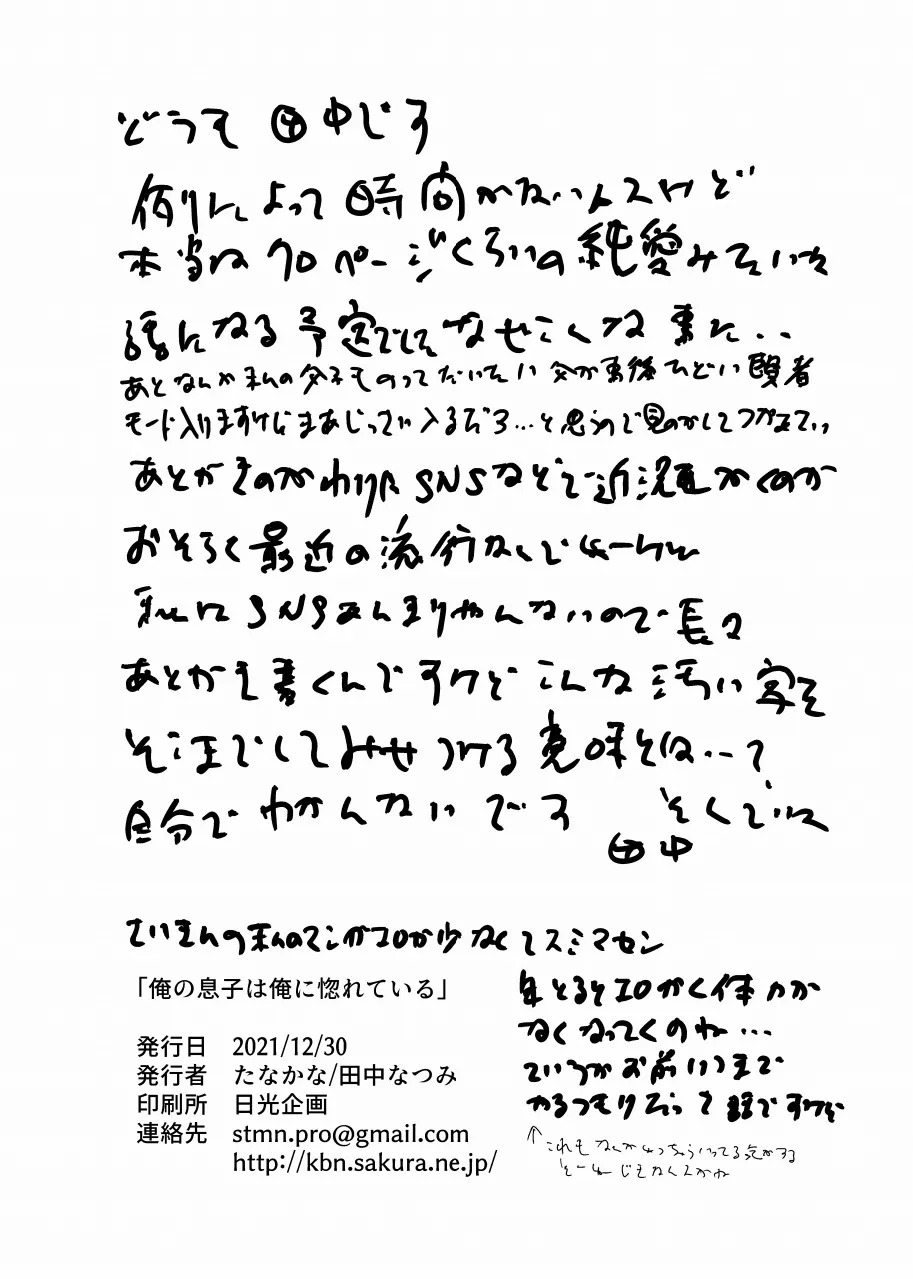 どうも 田中です
例によって時間がないんスけど
本当は70ページくらいの純愛みたいな
話になる予定でしてなぜこんな事に..
あとなんか私の父子ものってだいたい父が事後ひどい賢者
モード入りますけどまあじっさい入るだろ…と思うので見のがしてつかあさい
あとがきのかわりに SNSなどで近況かくのが
おそらく最近の流行なんでせーけど
私は SNSあんまりやんないので長々
あとがき書くんですけどこんな汚い字を
そこまでしてみせつける意味とは..?
自分でわかんないです
田中
さいきんの私のマンガエロが少なくてスミマセン
年とるとエロかく体力が
なくなってくのね…
ていうかお前いつまで
やるつもりだって話ですけど
↑これもなんかめっちゃいってる気がする
「俺の息子は俺に惚れている」
発行日 2021/12/30
発行者 たなかな/田中なつみ
印刷所 日光企画
連絡先 stmn.pro@gmail.com
http://kbn.sakura.ne.jp/